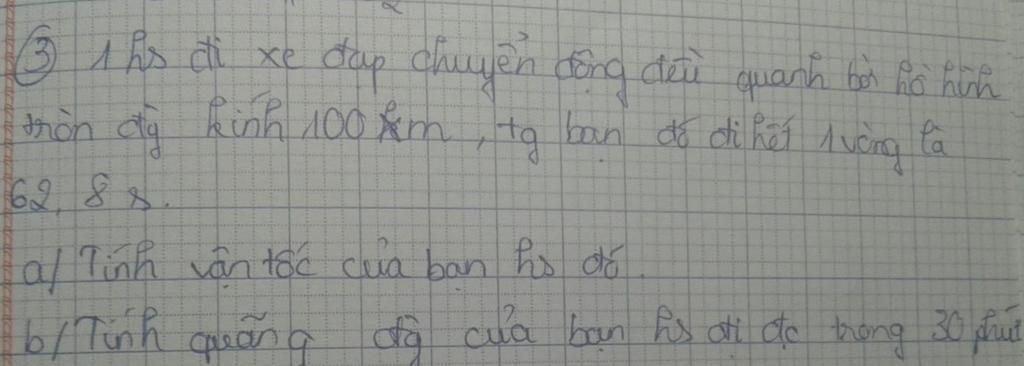 ③ 1 hs đi xe đạp chuyển động đều quanh bờ hồ hình
tròn đg kính 100 m, tg bạn đó đi hết 1 vòng là
62,8 s.
a/ Tính vận tốc của bạn hs đó.
b/ Tính quãng đg của bạn hs đi đc trong 30 phút